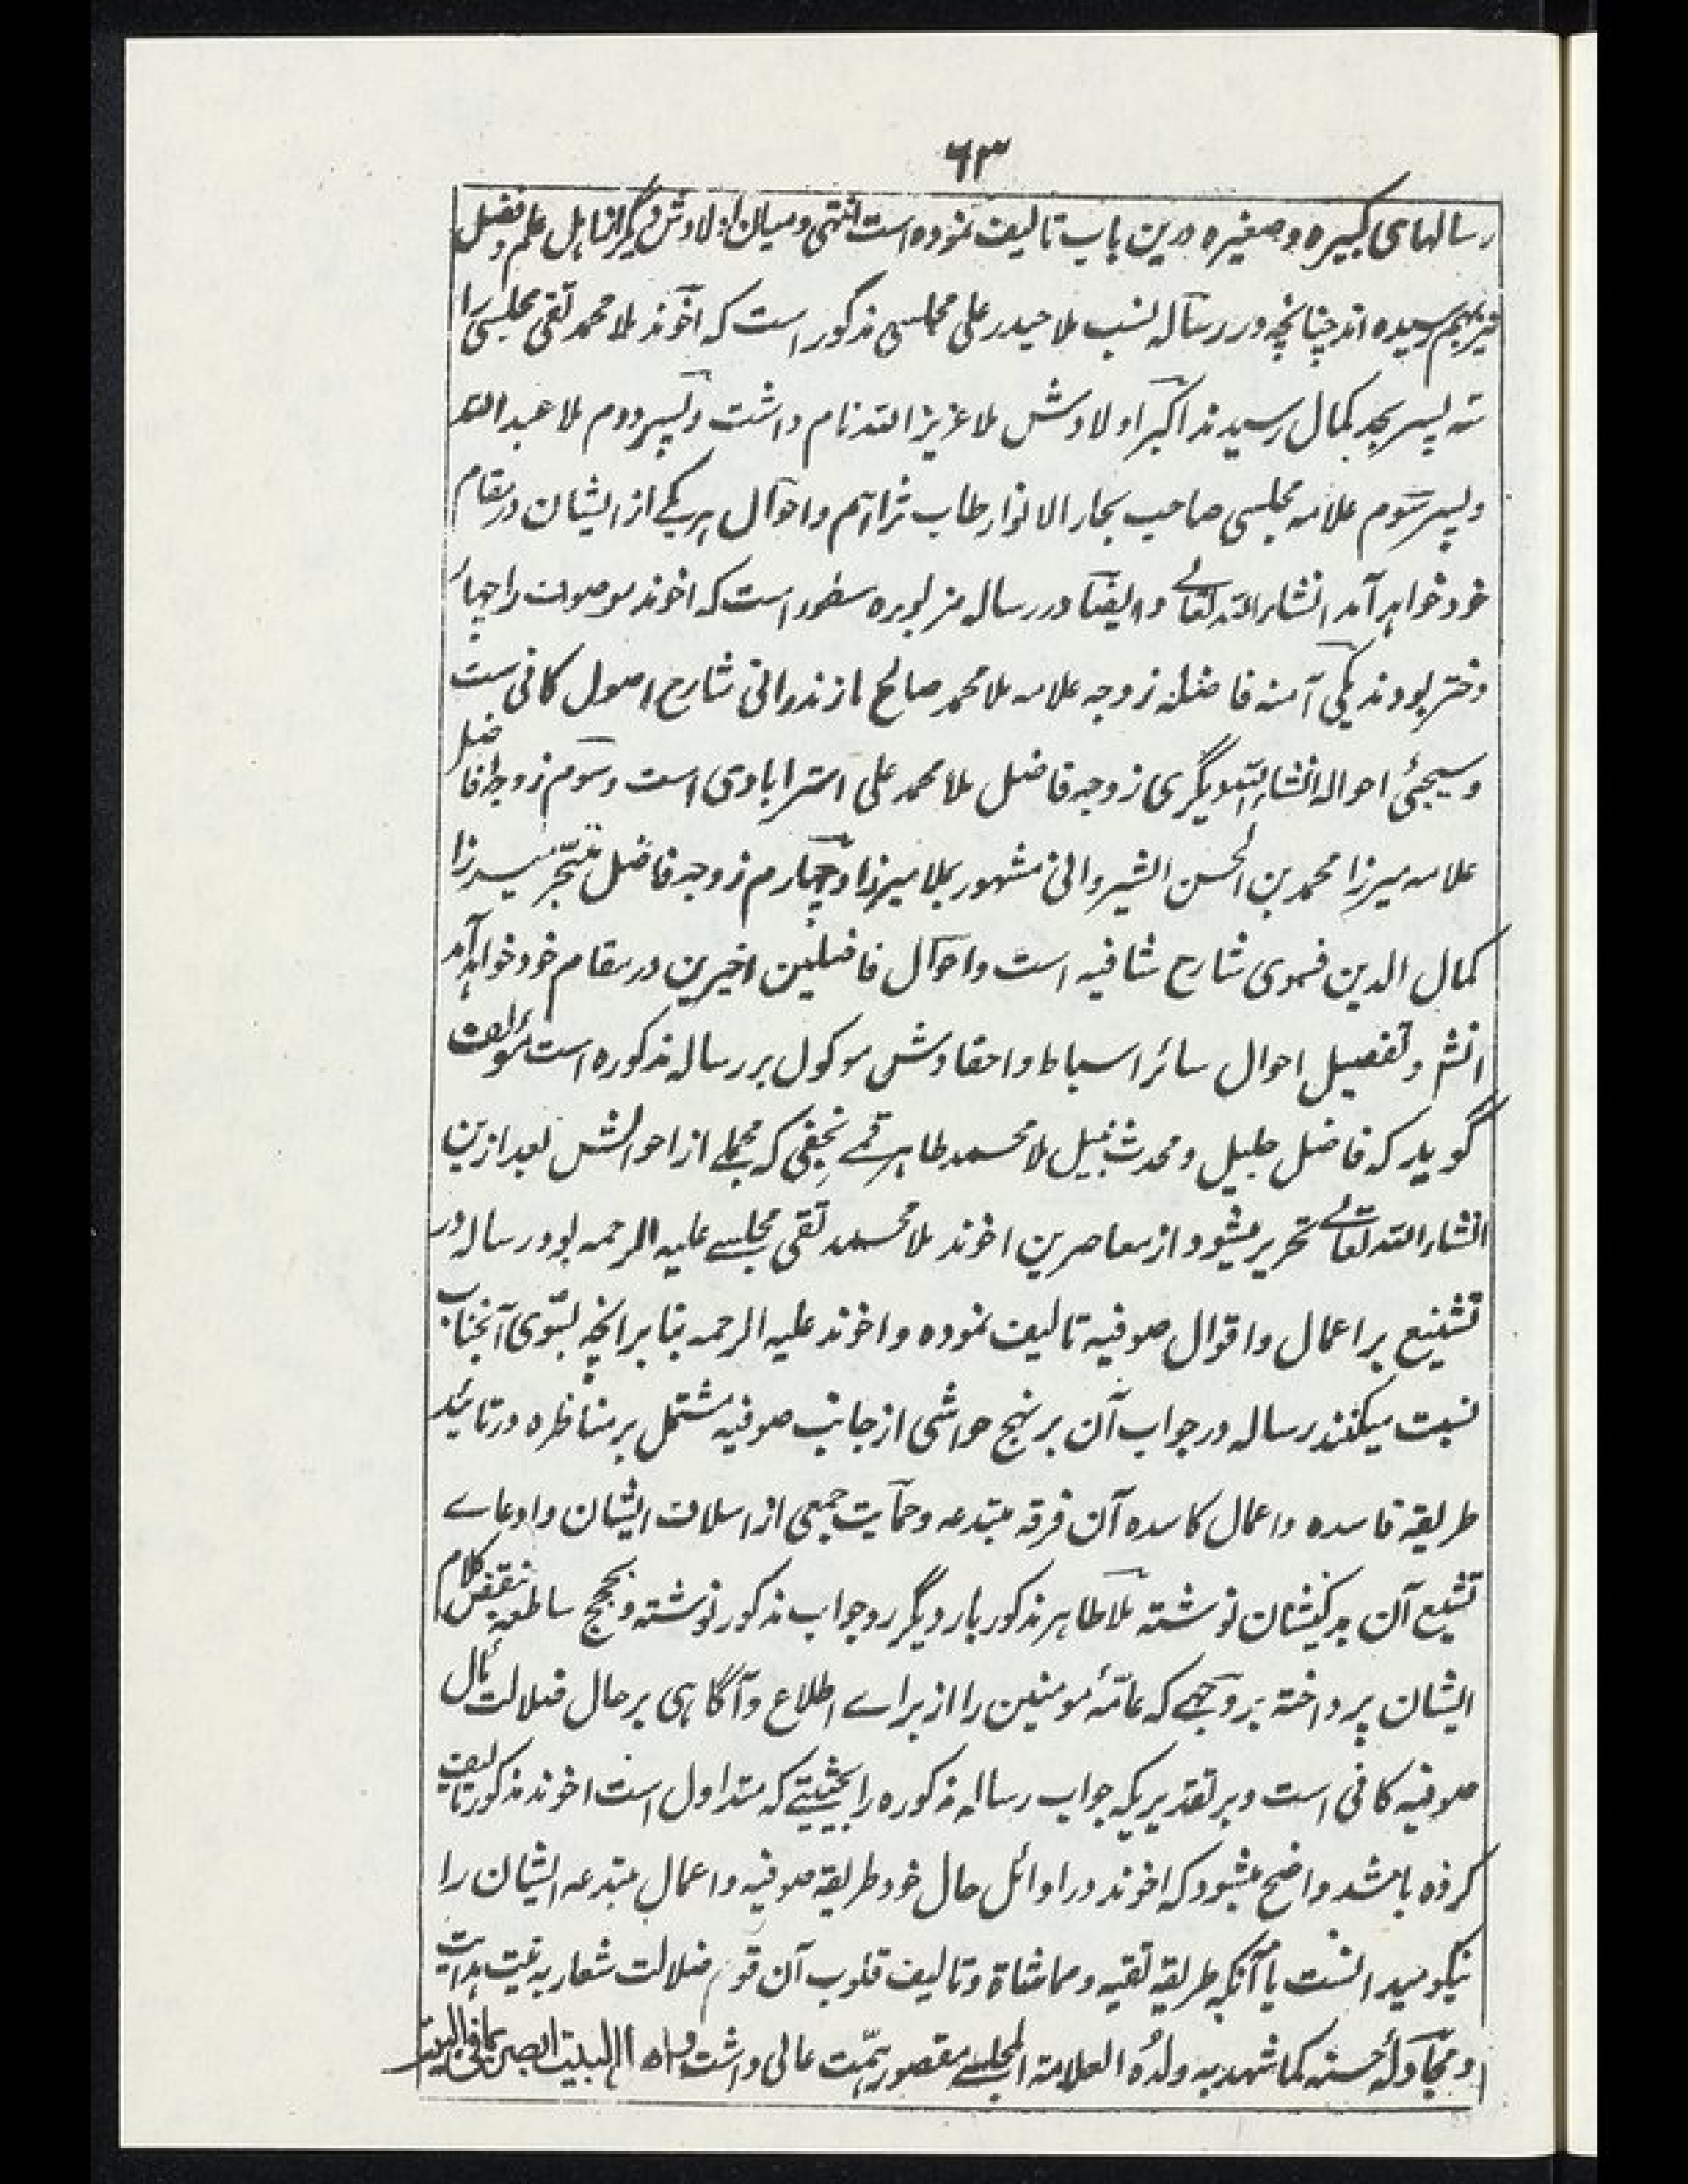 ٦٣
رسالهای کبیره وصغیره درین باب تالیف نموده است انتهی ومیان اولادش دیگر از اہل علم وفضل
نیز بهم رسیده اند چنانچه در رساله نسب ملا حیدر علی مجلسی مذکور است که آخوند ملا محمد تقی مجلسی را
سه پسر بحد کمال رسیدند اکبر اولادش ملا عزیز الله نام داشت وپسر دوم ملا عبد الله
وپسر سوم علامه مجلسی صاحب بحار الانوار طاب ثراہم واحوال ہریکے از ایشان در مقام
خود خواہد آمد انشاء الله تعالے وایضا در رساله مزبوره مسطور است که اخوند موصوف را چہار
دختر بودند یکی آمنه فاضله زوجه علامه ملا محمد صالح مازندرانی شارح اصول کافی ست
وسیجئی احواله انشاء الله دیگری زوجه فاضل ملا محمد علی استرابادی است وسوم زوجه فاضل
علامه میرزا محمد بن الحسن الشیروانی مشهور بملا میرزا وچہارم زوجه فاضل متبحّر میرزا
کمال الدین فسوی شارح شافیه است واحوال فاضلین اخیرین در مقام خود خواہد آمد
انشم وتفصیل احوال سائر اسباط واحفادش موکول بر رساله مذکوره است مؤلف
گوید که فاضل جلیل ومحدث نبیل ملا محمد طاہر قمے نجفی که مجملے از احوالش بعد ازین
انشاء الله تعالے تحریر میشود از معاصرین اخوند ملا محمد تقی مجلسے علیه الرحمه بود رساله در
تشنیع بر اعمال واقوال صوفیه تالیف نموده واخوند علیه الرحمه بنابر انچه بسوی آنجناب
نسبت میکنند رساله در جواب آن بر نہج حواشی از جانب صوفیه مشتمل بر مناظره در تائید
طریقه فاسده واعمال کاسده آن فرقه مبتدعه وحمایت جمعی از اسلاف ایشان وادعاے
تشیع آن بدکیشان نوشته ملا طاہر مذکور بار دیگر رد جواب مذکور نوشته وبحجج ساطعه بنقض کلام
ایشان پرداخته بر وجہے که عامّۂ مومنین را از براے اطلاع وآگاہی بر حال ضلالت مآل
صوفیه کافی است وبر تقدیریکه جواب رساله مذکوره را بحیثیتے که متداول است اخوند مذکور تالیف
کرده باشد واضح میشود که اخوند در اوائل حال خود طریقه صوفیه واعمال مبتدعه ایشان را
نیکو میدانست یا آنکه طریقه تقیه ومماشاة وتالیف قلوب آن قوم ضلالت شعار به نیت ہدایت
ومجادلۂ حسنه کما شهد به ولده العلامة المجلسے مقصور ہمّت عالی داشت